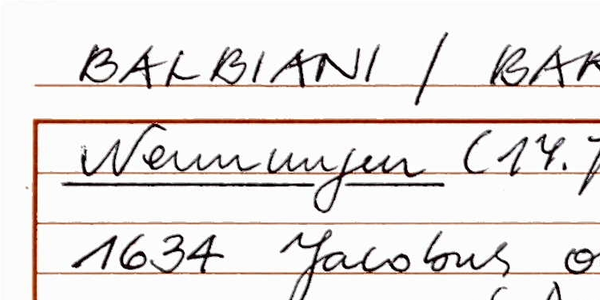 BALBIANI / BAR
Nennungen (14.7
1634 Jacobus o